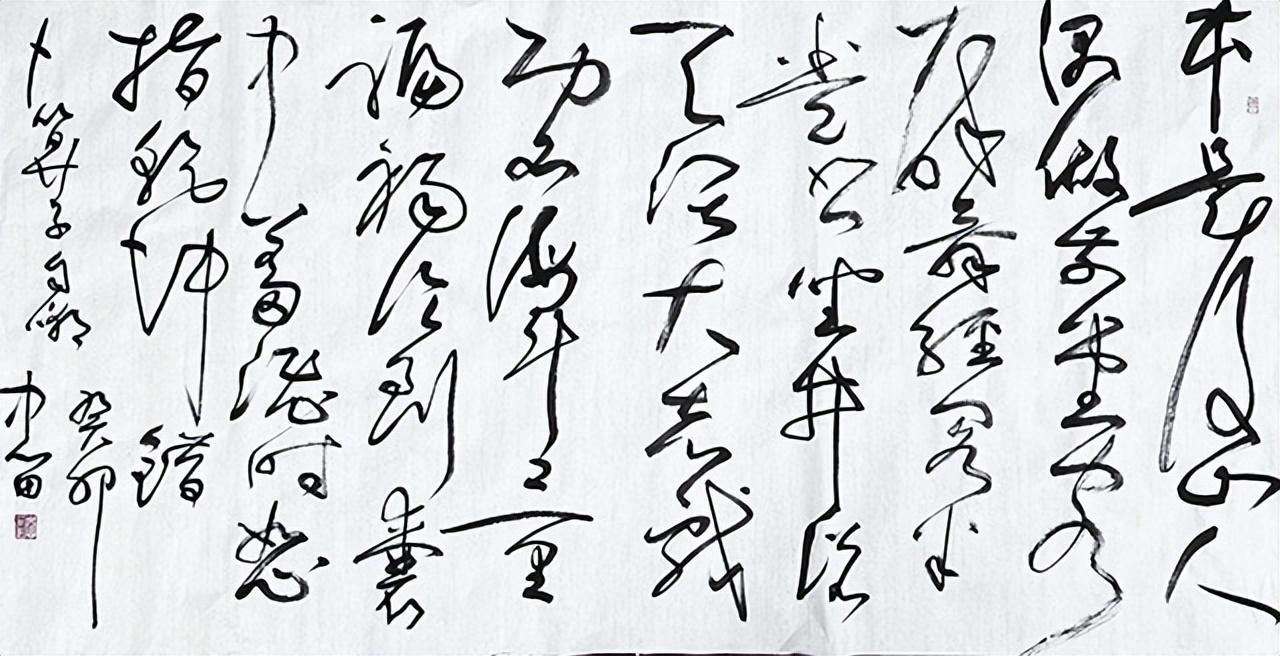 本是后山人
偶做前堂客
醉舞經阁半
卷书坐井说
天阔大志戏
功名海斗量
福祸论到囊
中羞涩时怒
指乾坤错
卜算子自嘲
癸卯